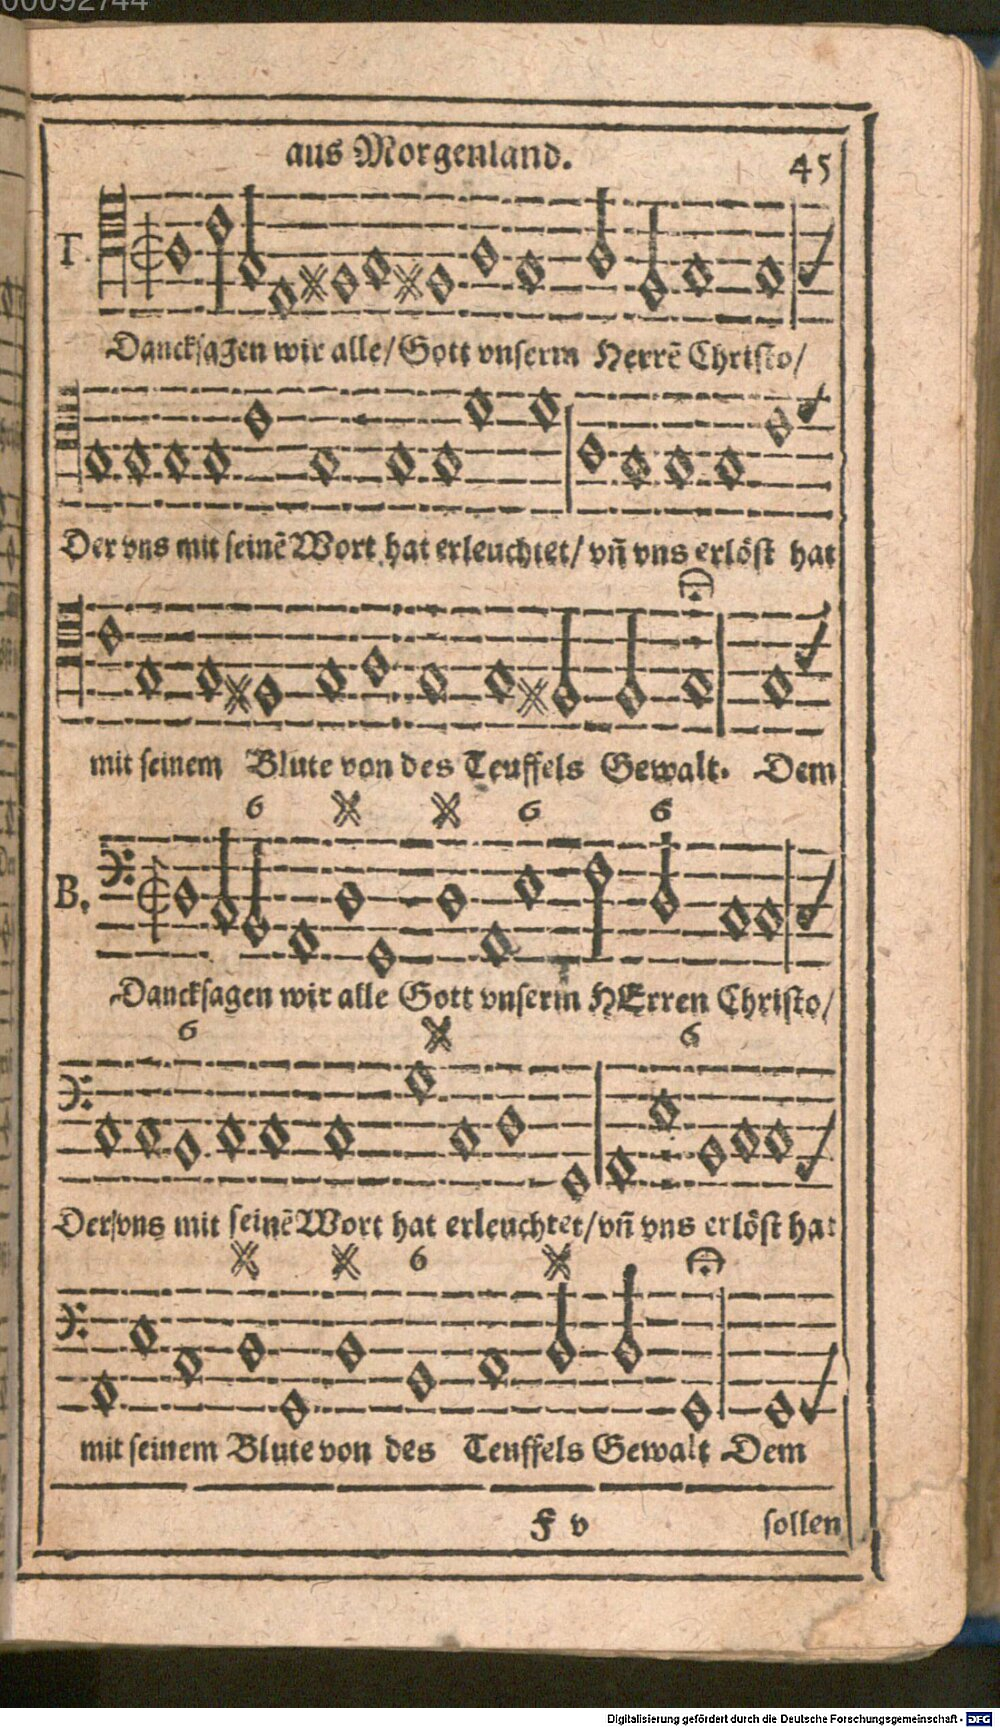 00092744
aus Morgenland.
45
T.
Dancksagen wir alle/ Gott vnserm Herrē Christo/
Der vns mit seinē Wort hat erleuchtet/ vñ vns erlöst hat
mit seinem Blute von des Teuffels Gewalt. Dem
6 6 6
B.
Dancksagen wir alle Gott vnserm HErren Christo/
6 6
Der vns mit seinē Wort hat erleuchtet/ vñ vns erlöst hat
6
mit seinem Blute von des Teuffels Gewalt Dem
F v
sollen
Digitalisierung gefördert durch die Deutsche Forschungsgemeinschaft - DFG